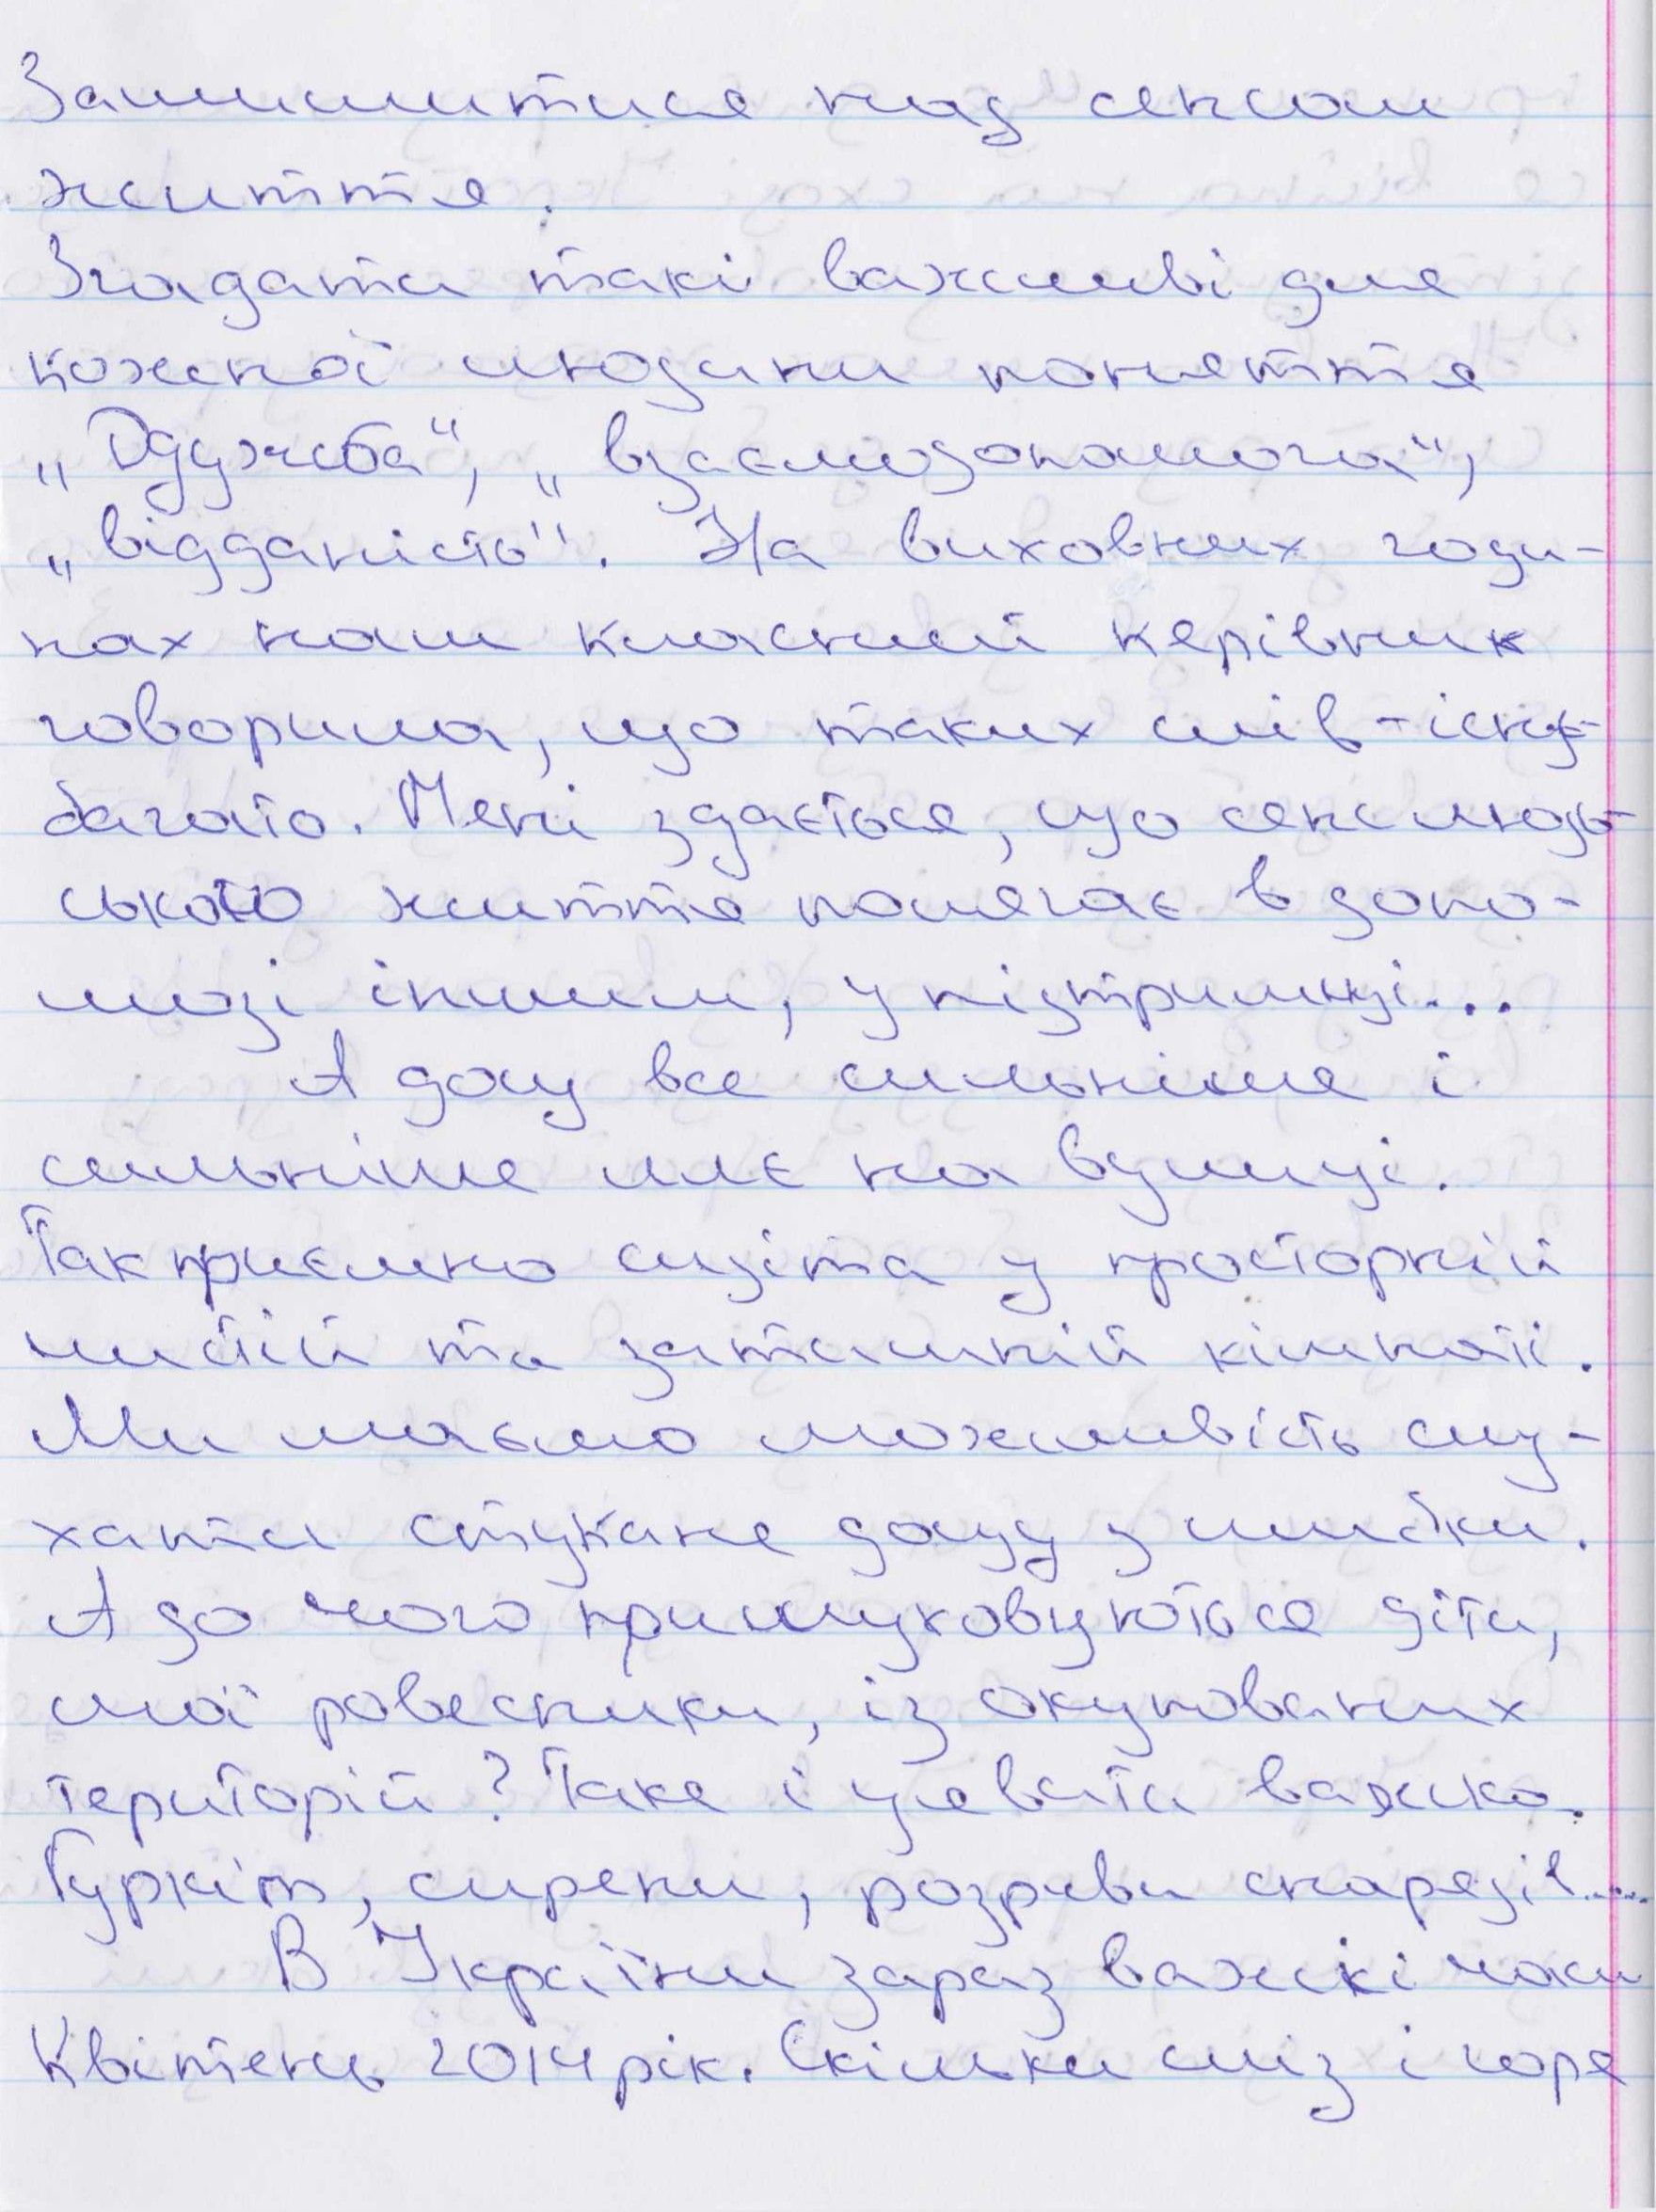 Замислитися над сенсом
життя.
Згадати такі важливі для
кожної людини поняття
„Дружба“, „взаємодопомога“,
„відданість“. На виховних годи-
нах наш класний керівник
говорила, що таких слів -
багато. Мені здається, що сенс людсь-
ського життя полягає в допо-
мозі іншим, у підтримці...
А дощ все сильніше і
сильніше ллє на вулиці.
Так приємно сидіти у просторній
чистій та затишній кімнаті.
Ми маємо можливість слу-
хати стукане дощу у шибки.
А до чого прислуховуються діти,
мої ровесники, із окупованих
територій? Таке і уявити важко.
Гуркіт, сирени, розриви снарядів.....
В Україні зараз важкі часи
Квітень 2014 рік. Скільки сліз і горя